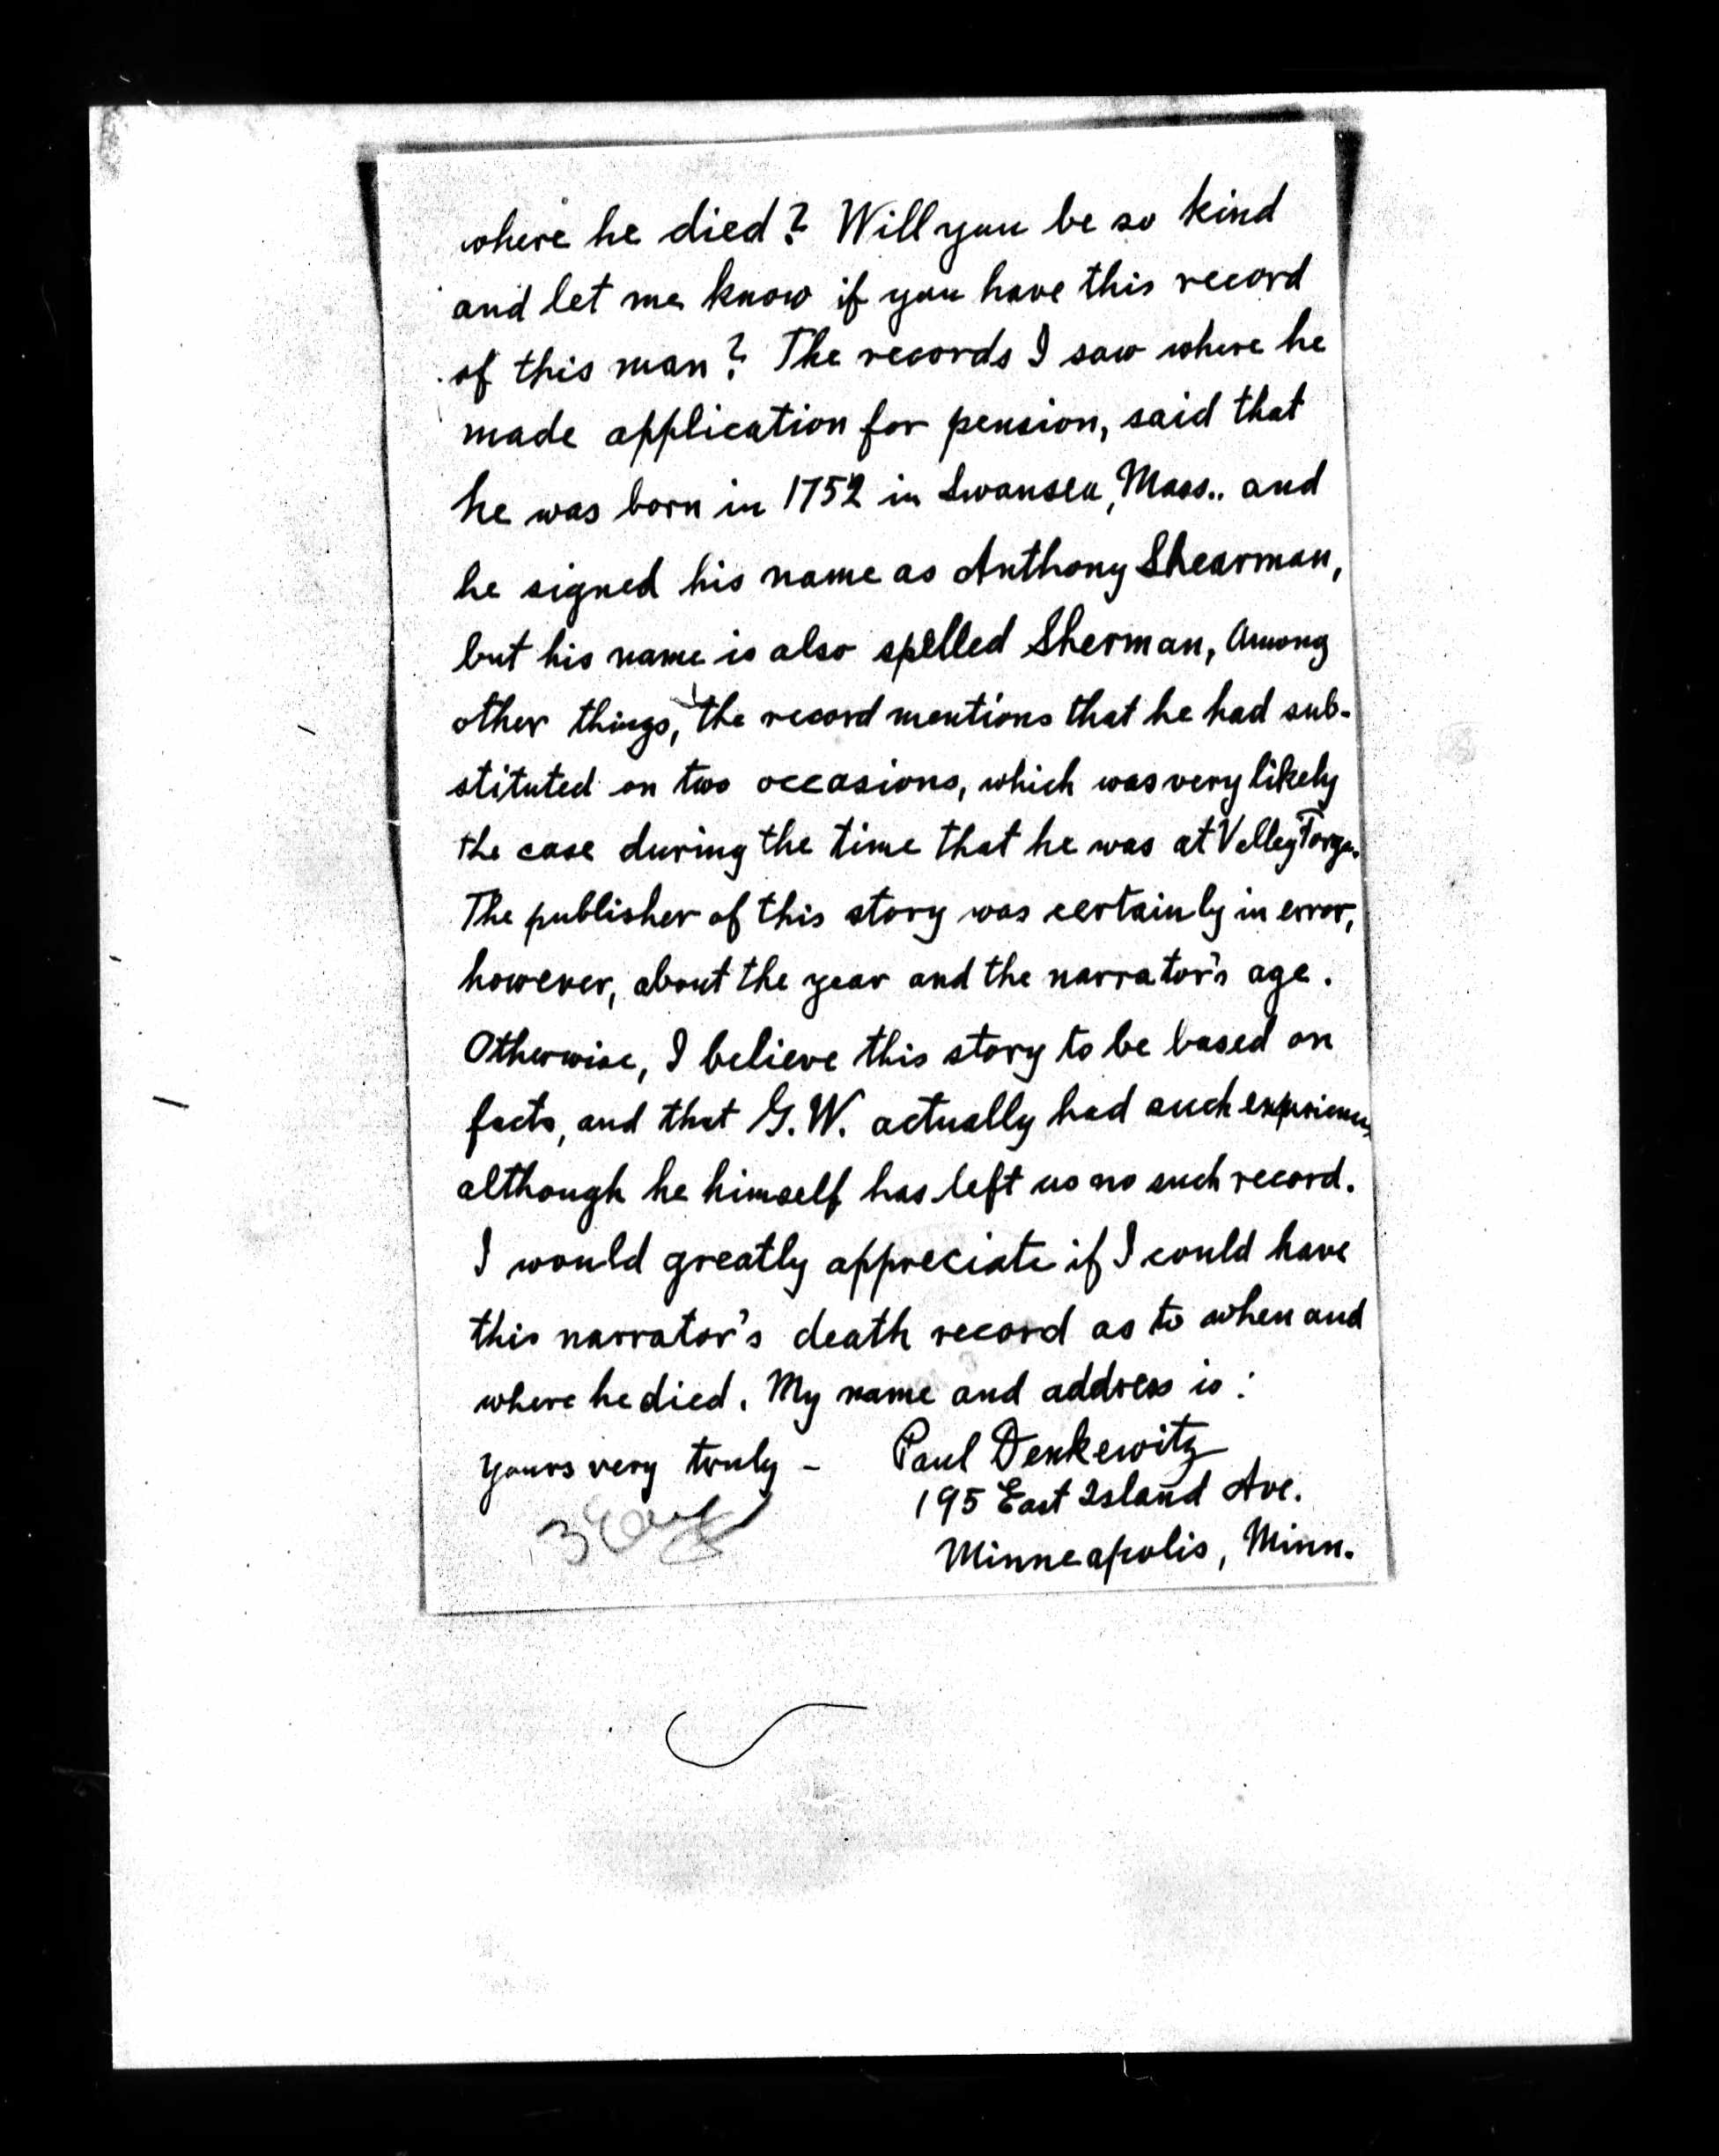 where he died? Will you be so kind
and let me know if you have this record
of this man? The records I saw where he
made application for pension, said that
he was born in 1752 in Swansea, Mass.. and
he signed his name as Anthony Shearman,
but his name is also spelled Sherman, Among
other things, the record mentions that he had sub-
stituted on two occasions, which was very likely
the case during the time that he was at Valley Forge.
The publisher of this story was certainly in error,
however, about the year and the narrator's age.
Otherwise, I believe this story to be based on
facts, and that G.W. actually had such
although he himself has left us no such record.
I would greatly appreciate if I could have
this narrator's death record as to when and
where he died. My name and address is:
Yours very truly – Paul Denkewitz
195 East Island Ave.
Minneapolis, Minn.